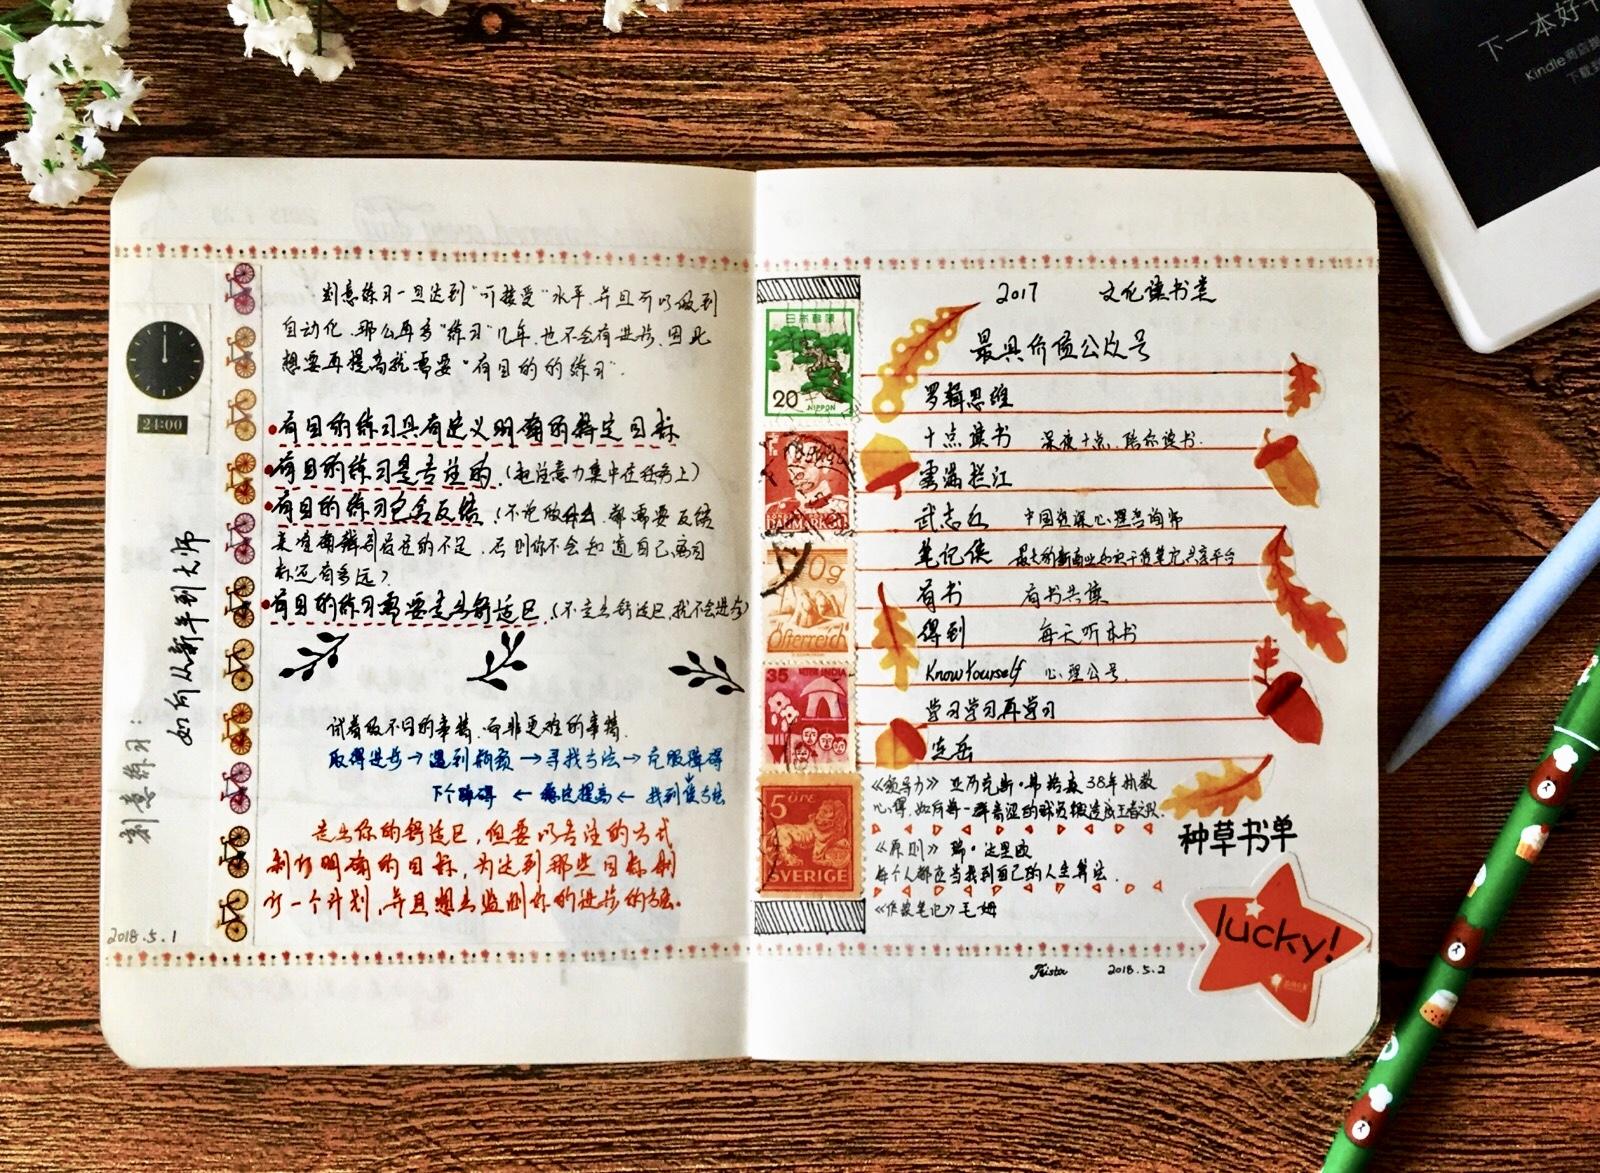 刻意练习:
如何从新手到大师
24:00
2018.5.1
刻意练习一旦达到“可接受”水平,并且可以做到
自动化,那么再多“练习”几年,也不会有进步,因此
想要再提高就需要“有目的的练习”.
有目的练习具有定义明确的特定目标
有目的练习是专注的.(把注意力集中在任务上)
有目的练习包含反馈.(不论做什么,都需要反馈
来准确辨别存在的不足,否则你不会知道自己离目
标还有多远)
有目的练习需要走出舒适区.(不走出舒适区,我不会进步)
试着做不同的事情,而非更难的事情.
取得进步→遇到瓶颈→寻找方法→克服障碍
下个障碍 ← 稳定提高 ← 找到传方法
走出你的舒适区,但要以专注的方式
制订明确的目标,为达到那些目标制
订一个计划,并且想出监测你的进步的方法.
日本郵便
20 NIPPON
DANMARK
0g
Österreich
35 भारत INDIA
5 ÖRE
SVERIGE
2017 文化读书类
最具价值公众号
罗辑思维
十点读书 深夜十点,陪你读书.
云满拦江
武志红 中国资深心理咨询师
笔记侠 最大的新商业知识干货笔记共享平台
有书 有书共读
得到 每天听本书
KnowYourself 心理公号.
学习学习再学习
先岳
《领导力》 亚历克斯·弗格森 38年执教
心得,如何将一群青涩的球员锻造成王者之识.
种草书单
《原则》 瑞·达里欧
每个人都应当找到自己的人生算法.
《作家笔记》毛姆
lucky!
2018.5.2
下一本好书
Kindle商店
下载到